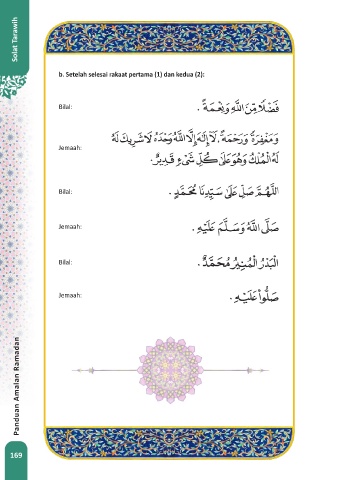 Solat Tarawih
b. Setelah selesai rakaat pertama (1) dan kedua (2):
Bilal:
فَضْلًا مِّنَ اللَّهِ وَنِعْمَةً .
Jemaah:
وَمَغْفِرَةً وَرَحْمَةً. لَآ إِلَهَ إِلَّا اللَّهُ وَحْدَهُ لَا شَرِيكَ لَهُ
لَهُ الْمُلْكُ وَهُوَ عَلَى كُلِّ شَيْءٍ قَدِيْرٌ.
Bilal:
اَللَّهُمَّ صَلِّ عَلَى سَيِّدِنَا مُحَمَّدٍ .
Jemaah:
صَلَّى اللَّهُ وَسَلَّمَ عَلَيْهِ .
Bilal:
الْبَدْرُ الْمُنِيْرُ مُحَمَّدٌ .
Jemaah:
صَلُّوْا عَلَيْهِ .
Panduan Amalan Ramadan
169